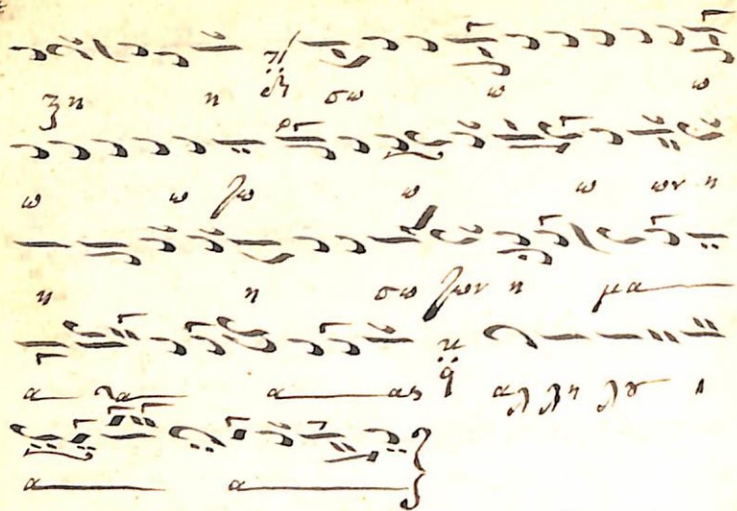 ζη η σω ω ω
ω ω ζω ω ω ων η
η η σω ζων η μα
α α α ας αλλη λου ι
α α